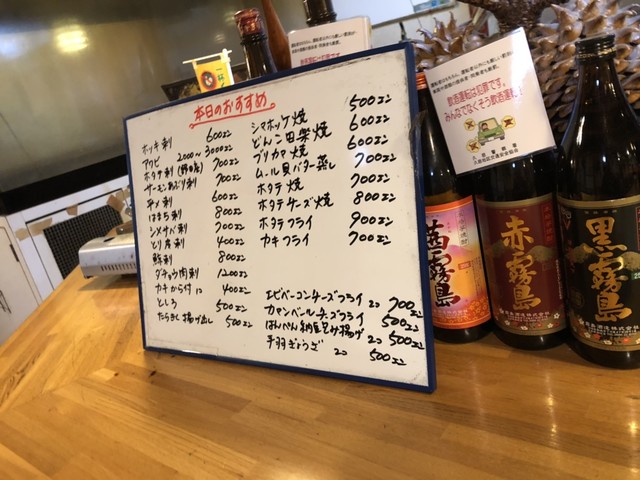 本日のおすすめ
ホッキ刺 600エン
アワビ 2000〜3000エン
ホタテ刺 700エン
サーモンあぶり刺 700エン
平メ刺 600エン
はまち刺 800エン
シメサバ刺 700エン
とり皮刺 400エン
鯨刺 800エン
ダチョウ肉刺 1200エン
カキから付 1コ 400エン
としろ 500エン
たらきく揚げ出し 500エン
シマホッケ焼 500エン
どんこ田楽焼 600エン
ブリカマ焼 600エン
ムール貝バター蒸し 700エン
ホタテ焼 700エン
ホタテチーズ焼 800エン
ホタテフライ 900エン
カキフライ 700エン
エビベーコンチーズフライ 2コ 700エン
カマンベールチーズフライ 500エン
はんぺん納豆はさみ揚げ 2コ 500エン
手羽ぎょうざ 2コ 500エン
飲酒運転は犯罪です。
みんなでなくそう飲酒運転!
茜霧島
赤霧島
黒霧島